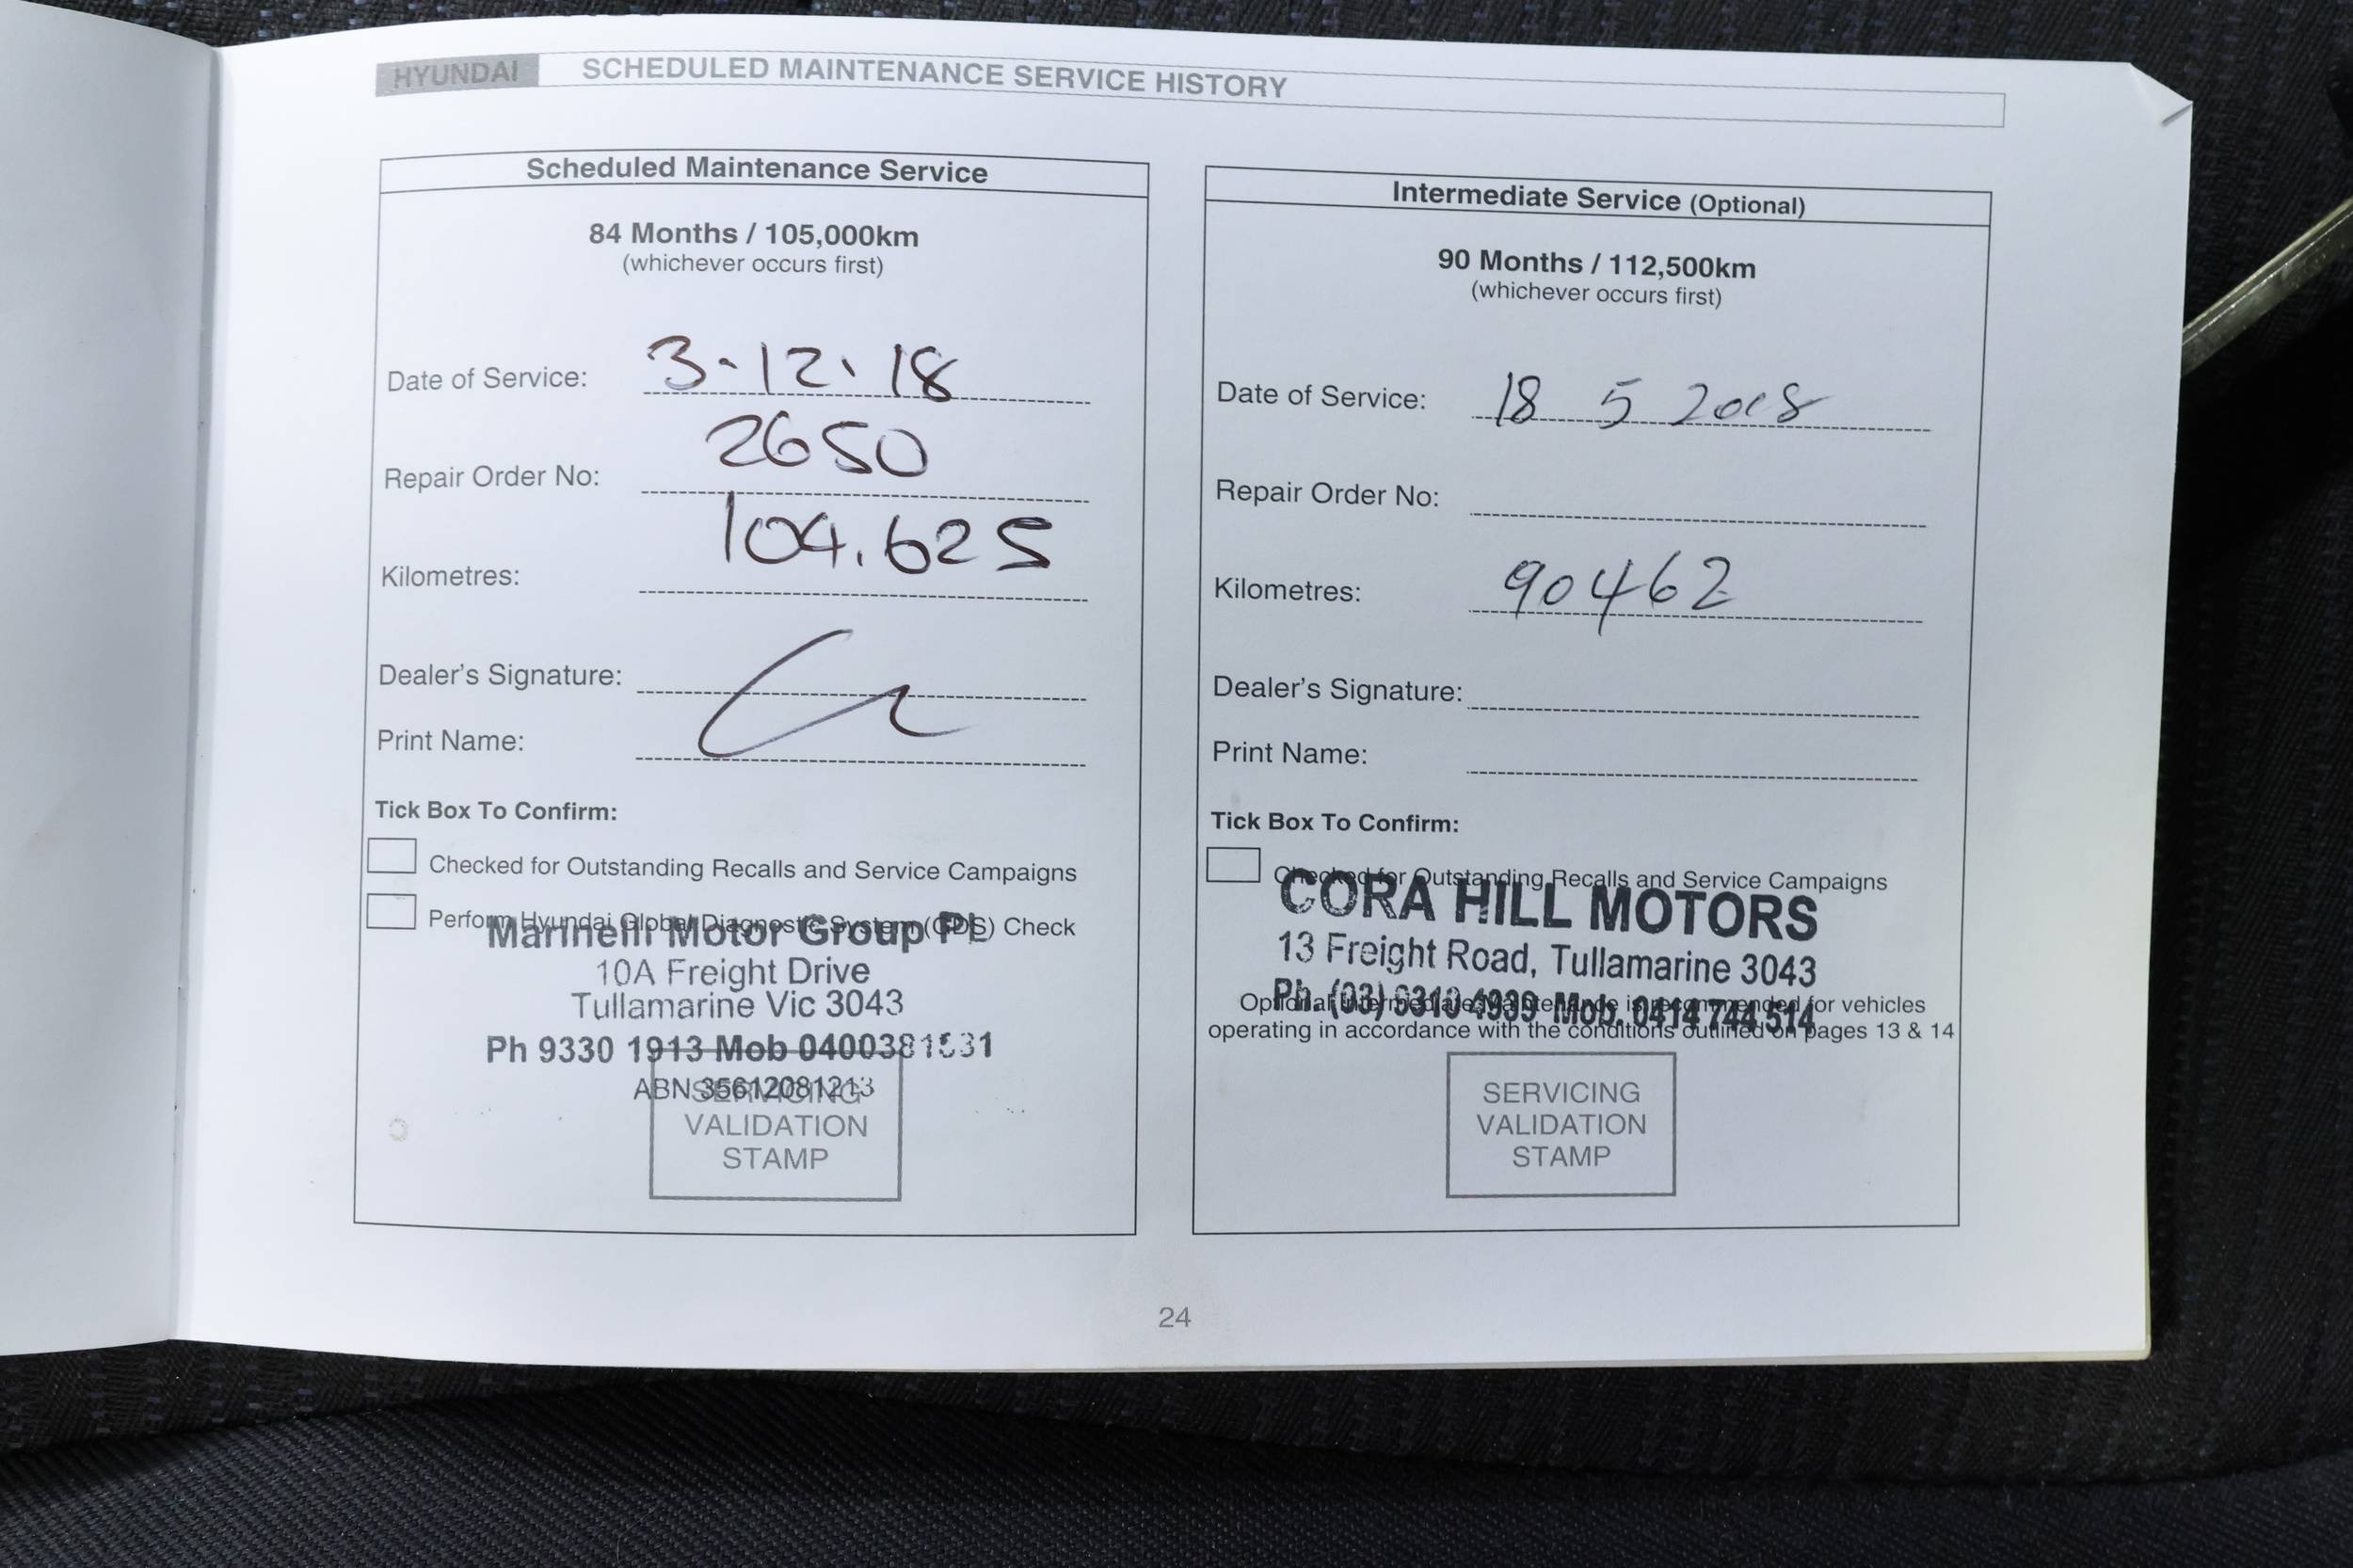 HYUNDAI SCHEDULED MAINTENANCE SERVICE HISTORY
Scheduled Maintenance Service
84 Months / 105,000km
(whichever occurs first)
Date of Service: 3-12.18
Repair Order No: 2650
Kilometres: 104.625
Dealer's Signature:
Print Name:
Tick Box To Confirm:
Checked for Outstanding Recalls and Service Campaigns
Perform Hyundai Global Diagnostic System (GDS) Check
Marinelli Motor Group PL
10A Freight Drive
Tullamarine Vic 3043
Ph 9330 1913 Mob 0400381531
ABN 35612081213
SERVICING
VALIDATION
STAMP
Intermediate Service (Optional)
90 Months / 112,500km
(whichever occurs first)
Date of Service: 18 5 2018
Repair Order No:
Kilometres: 90462
Dealer's Signature:
Print Name:
Tick Box To Confirm:
Checked for Outstanding Recalls and Service Campaigns
CORA HILL MOTORS
13 Freight Road, Tullamarine 3043
Ph. (03) 9310 4939 Mob. 0414 744 514
Optional Intermediate Maintenance is recommended for vehicles
operating in accordance with the conditions outlined on pages 13 & 14
SERVICING
VALIDATION
STAMP
24